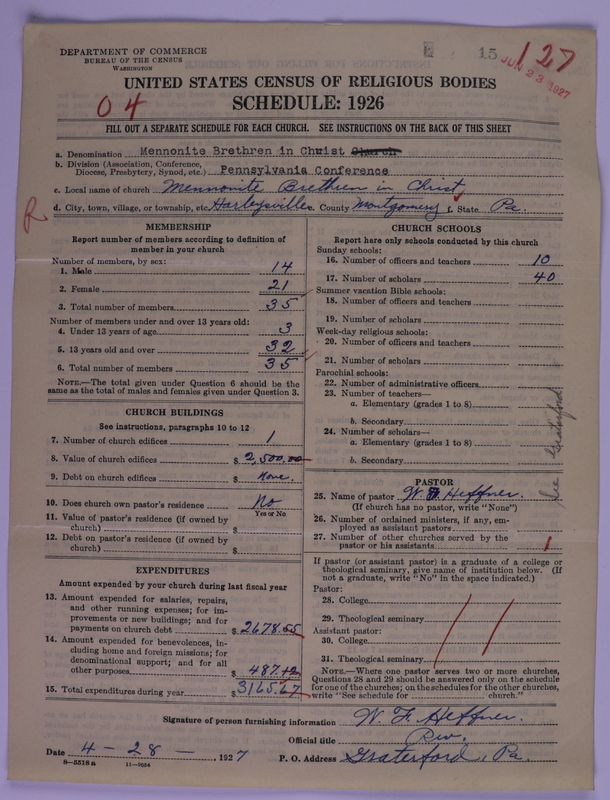 DEPARTMENT OF COMMERCE
BUREAU OF THE CENSUS
WASHINGTON
15
127
JUN 23 1927
UNITED STATES CENSUS OF RELIGIOUS BODIES
04
SCHEDULE: 1926
FILL OUT A SEPARATE SCHEDULE FOR EACH CHURCH. SEE INSTRUCTIONS ON THE BACK OF THIS SHEET
a. Denomination Mennonite Brethren in Christ Church
b. Division (Association, Conference, Diocese, Presbytery, Synod, etc.) Pennsylvania Conference
c. Local name of church Mennonite Brethren in Christ
d. City, town, village, or township, etc. Harleysville e. County Montgomery f. State Pa.
R
MEMBERSHIP
Report number of members according to definition of
member in your church
Number of members, by sex:
1. Male 14
2. Female 21
3. Total number of members 35
Number of members under and over 13 years old:
4. Under 13 years of age 3
5. 13 years old and over 32
6. Total number of members 35
NOTE.—The total given under Question 6 should be the
same as the total of males and females given under Question 3.
CHURCH BUILDINGS
See instructions, paragraphs 10 to 12
7. Number of church edifices 1
8. Value of church edifices $ 2,500.00
9. Debt on church edifices $ None.
10. Does church own pastor's residence No
Yes or No
11. Value of pastor's residence (if owned by
church) $
12. Debt on pastor's residence (if owned by
church) $
EXPENDITURES
Amount expended by your church during last fiscal year
13. Amount expended for salaries, repairs,
and other running expenses; for im-
provements or new buildings; and for
payments on church debt $ 2678.55
14. Amount expended for benevolences, in-
cluding home and foreign missions; for
denominational support; and for all
other purposes $ 487.12
15. Total expenditures during year $ 3165.67
CHURCH SCHOOLS
Report here only schools conducted by this church
Sunday schools:
16. Number of officers and teachers 10
17. Number of scholars 40
Summer vacation Bible schools:
18. Number of officers and teachers
19. Number of scholars
Week-day religious schools:
20. Number of officers and teachers
21. Number of scholars
Parochial schools:
22. Number of administrative officers
23. Number of teachers—
a. Elementary (grades 1 to 8)
b. Secondary
24. Number of scholars—
a. Elementary (grades 1 to 8)
b. Secondary
See Graterford
PASTOR
25. Name of pastor W. F. Heffner.
(If church has no pastor, write "None")
26. Number of ordained ministers, if any, em-
ployed as assistant pastors
27. Number of other churches served by the
pastor or his assistants 1
If pastor (or assistant pastor) is a graduate of a college or
theological seminary, give name of institution below. (If
not a graduate, write "No" in the space indicated.)
Pastor:
28. College
29. Theological seminary
Assistant pastor:
30. College
31. Theological seminary
NOTE.—Where one pastor serves two or more churches,
Questions 28 and 29 should be answered only on the schedule
for one of the churches; on the schedules for the other churches,
write "See schedule for church."
Signature of person furnishing information W. F. Heffner.
Official title Rev.
Date 4 - 28 - , 1927
P. O. Address Graterford, Pa.
8-5518a 11-9034